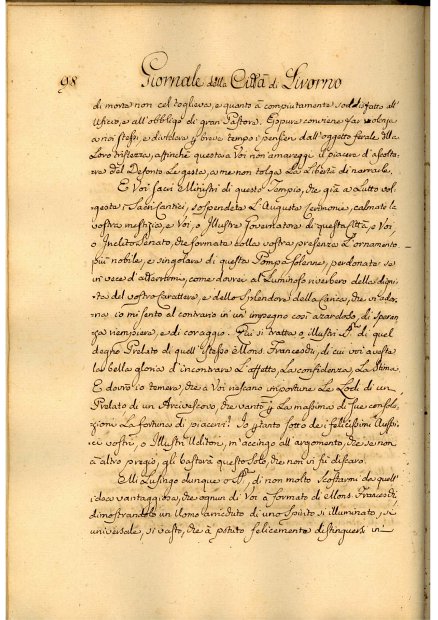 98 Giornale della Città di Livorno
di morte non cel toglieva, e quanto à compiutamente soddisfatto all'
Ufficio, e all'obbligo di gran Pastore. Eppure conviene far violenza
a noi stessi, e distorre p breve tempo i pensieri dall'oggetto ferale della
Loro tristezza, affinchè questa a Voi non amareggi il piacere d'ascolta-
re del Defonto Le gesta, a me non tolga La Libertà di narrarle.
E Voi Sacri Ministri di questo Tempio, che già a Lutto vol-
gesti i Sacri Cantici, sospendete L'Auguste Cerimonie, calmate la
vostra mestizia, e Voi, o Illustre Governatore di questa Città, e Voi,
o Inclito Senato, che formate colla vostra presenza L'ornamento
più nobile, e singolare di questa Pompa Solenne, perdonate se
in vece d'atterrirmi, come dovrei al Luminoso riverbero della digni-
tà del vostro Carattere, e dello Splendore della Carica, che vi ador-
na io mi sento al contrario in un'impegno così azardoso, di speran-
za riempiere, e di coraggio. Qui si tratta o Illustri SS.ri di quel
degno Prelato di quell'istesso Mons. Franceschi, di cui voi aveste
la bella gloria d'incontrare L'affetto, La confidenza, La stima.
E dovrò io temere, che a Voi riescano importune Le Lodi di un
Prelato di un Arcivescovo, che vantò p La massima di sue consola-
zioni La fortuna di piacervi? Io p tanto sotto de i felicissimi Auspi-
ci vostri, o Illustri Uditori, m'accingo all'argomento, che se non
à altro pregio, gli basterà questo solo, che non vi fù discaro.
Mi Lusingo dunque o SS.ri, di non molto scostarmi da quell'
idea vantaggiosa, che ognun di Voi à formato di Mons. Franceschi,
dimostrandolo un Uomo arricchito di uno Spirito si illuminato, si
universale, si vasto, che à potuto felicemente distinguersi in